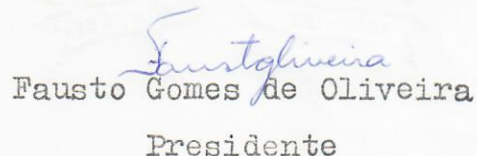 Faustgliveira
Fausto Gomes de Oliveira
Presidente